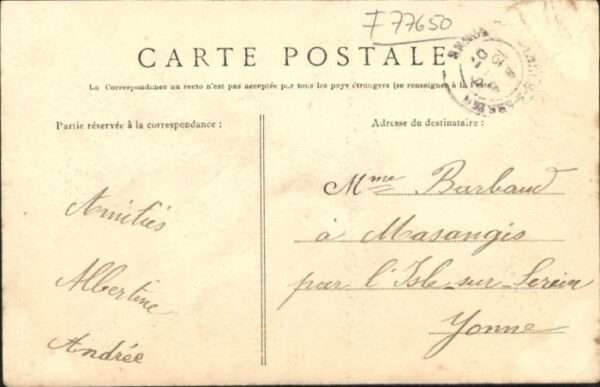 F 77650
CARTE POSTALE
La Correspondance au recto n'est pas acceptée par tous les pays étrangers (se renseigner à la
Partie réservée à la correspondance :
Adresse du destinataire :
Amitiés
Albertine
Andrée
Mme Barbaud
à Masangis
par l'Isle-sur-Serein
Yonne